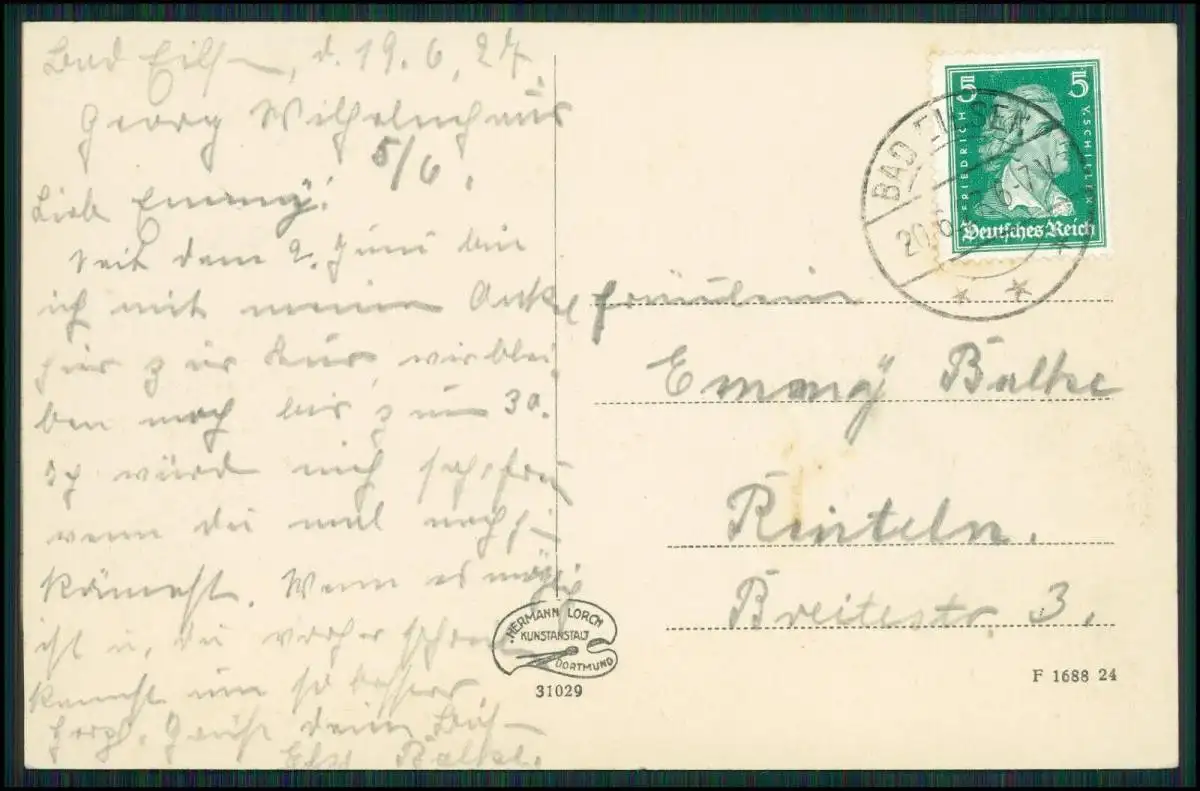 Bad Eilsen, d. 19.6.27.
Georg Wilhelmhaus
5/6.
Lieb Emmy!
Seit dem 2. Juni bin
ich mit meiner Onkel
hier zur Kur, wir blei
ben noch bis zum 30.
Ich würde mich sehr freu
wenn du mal noch hi
kämest. Wenn es mögli
ist u. du vorher schrei
kannst um so besser.
Herzl. Grüße deine
Else Balke.
Fräulein
Emmy Balke
Rinteln.
Breitestr. 3.
5 5
FRIEDRICH V. SCHILLER
Deutsches Reich
BAD EILSEN
20.6. 6-7V
HERMANN LORCH
KUNSTANSTALT
DORTMUND
31029
F 1688 24